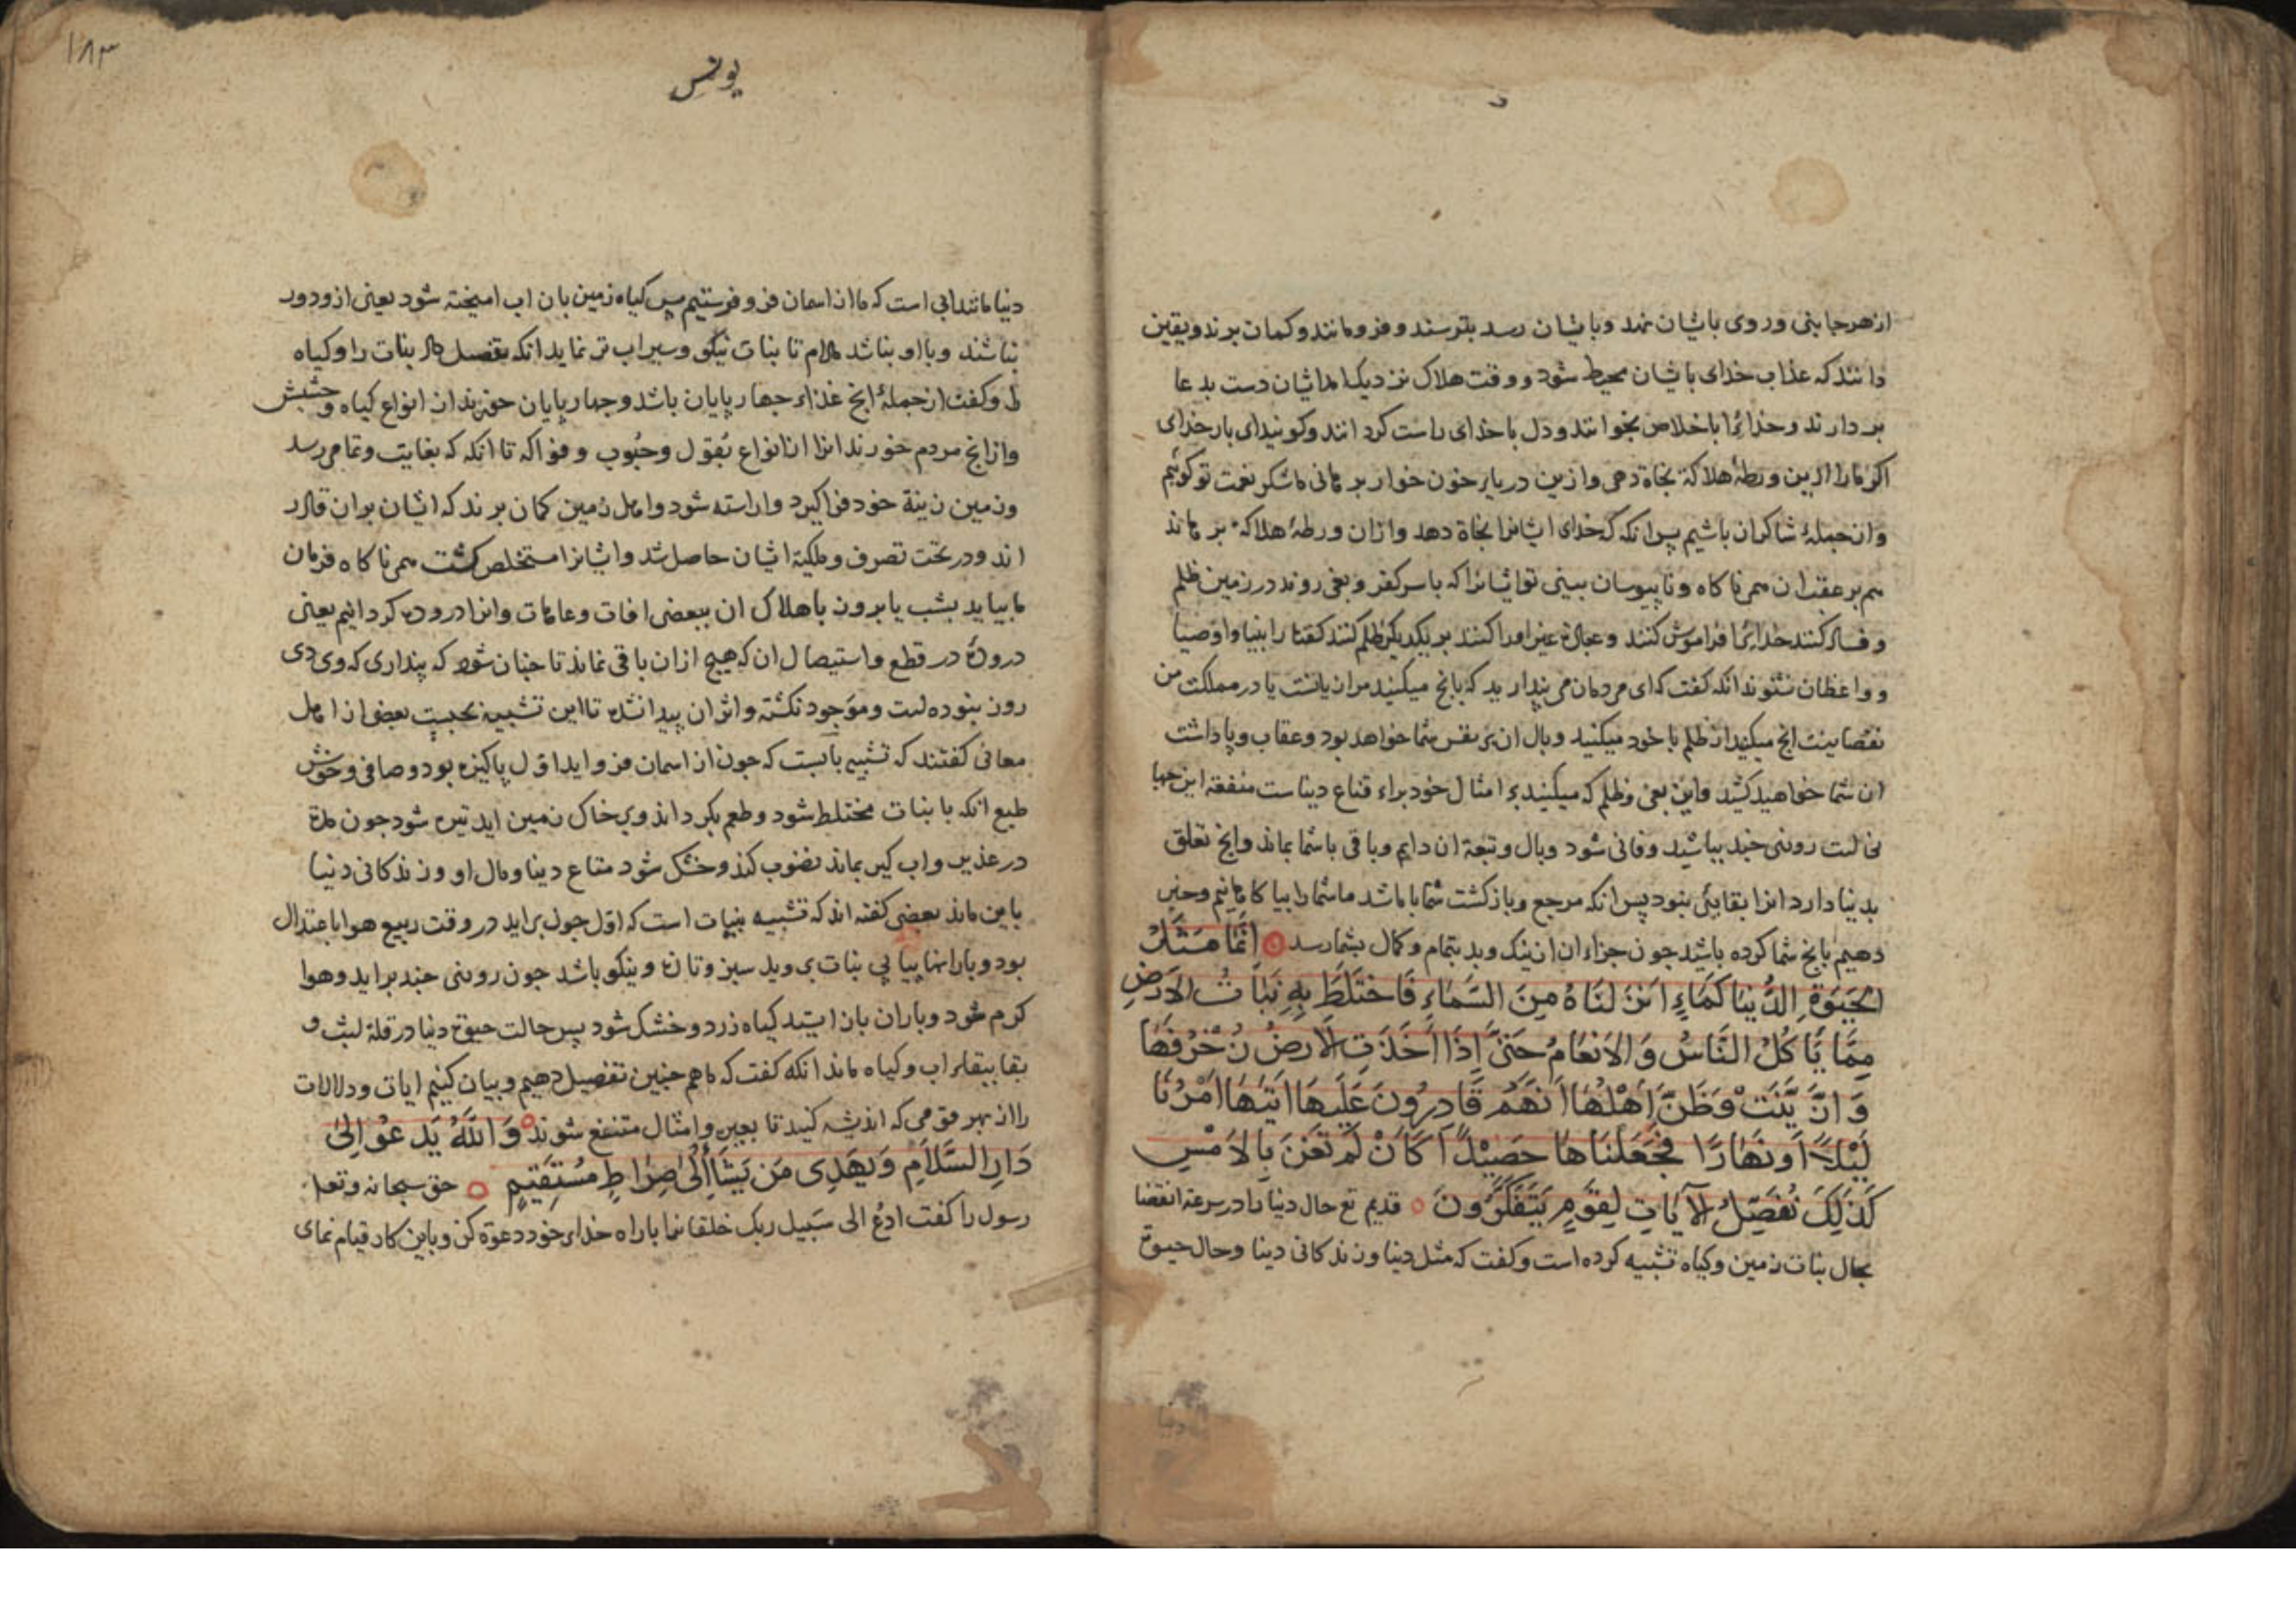 از هر جانبی و روی باشان نهد و باشان رسد بترسند و فرومانند و کمان برند و یقین
دانند که عذاب خدای باشان محیط شود و وقت هلاک نزدیک امد اشان دست بدعا
بردارند و خدایرا باخلاص بخوانند و دل با خدای راست کردانند و کویند ای بار خدای
اکر ما را ازین ورطهٔ هلاکة نجاة دهی و ازین دریای خون خوار برهانی ما شکر نعمت تو کوئیم
و از جملهٔ شاکران باشیم پس انکه که خدای اشانرا نجاة دهد و ازان ورطهٔ هلاکة برهاند
هم بر عقب ان هم ناکاه و نابیوسان بینی تو اشانرا که باسر کفر و بغی روند در زمین ظلم
و فساد کنند خدایرا فراموش کنند و عبادة غیر او را کنند بر یکدیکر ظلم کنند کفتار انبیا و اوصیا
و واعظان نشنوند انکه کفت که ای مردمان می پندارید که بانچ میکنید مرا زیانست یا در مملکت من
نقصانیست انچ میکنید از ظلم با خود میکنید وبال ان بر نفس شما خواهد بود و عقاب و پاداشت
ان شما خواهید کشید و این بغی و ظلم که میکنید بر امثال خود براء متاع دنیاست منفعة این جهانی
است روزی چند بباشید و فانی شود وبال و تبعة ان دایم و باقی باشما بماند وانچ تعلق
بدنیا دارد انرا بقایی نبود پس انکه مرجع و بازکشت شما با ما باشد ما شما را بیاکاهانیم و خبر
دهیم بانچ شما کرده باشید جون جزاء ان از نیک و بد بتمام و کمال بشما رسد اِنَّمَا مَثَلُ
الْحَیٰوةِ الدُّنْیَا کَمَاءٍ اَنْزَلْنَاهُ مِنَ السَّمَاءِ فَاخْتَلَطَ بِهِ نَبَاتُ الْاَرْضِ
مِمَّا یَأْکُلُ النَّاسُ وَ الْاَنْعَامُ حَتَّی اِذَا اَخَذَتِ الْاَرْضُ زُخْرُفَهَا
وَ ازَّیَّنَتْ وَظَنَّ اَهْلُهَا اَنَّهُمْ قَادِرُونَ عَلَیْهَا اَتٰیهَا اَمْرُنَا
لَیْلًا اَوْ نَهَارًا فَجَعَلْنَاهَا حَصِیْدًا کَاَنْ لَمْ تَغْنَ بِالْاَمْسِ
کَذٰلِكَ نُفَصِّلُ الْآیَاتِ لِقَوْمٍ یَتَفَکَّرُونَ قدیم تع حال دنیا را در سرعة انقضا
بحال نبات زمین و کیاه تشبیه کرده است و کفت که مثل دنیا و زندکانی دنیا و حال حیوة
۱۸۳
یونس
دنیا مانند ابی است که ما از اسمان فرو فرستیم پس کیاه زمین بان اب امیخته شود یعنی ازو دور
نباشند و با او بباشد مدام تا نبات نیکو و سیراب تر نماید انکه تفصل داد نبات را و کیاه
را و کفت از جملهٔ انچ غذاء جهارپایان باشد و جهارپایان خورند از انواع کیاه و حشیش
و ازانچ مردم خورند انرا از انواع بُقول و حُبُوب و فواکه تا انکه که بغایت و تمامی رسد
و زمین زینة خود فرا کیرد و اراسته شود و اهل زمین کمان برند که اشان بران قادر
اند و در تحت تصرف و ملکیة اشان حاصل شد و اشانرا مستخلص کشت هم ناکاه فرمان
ما بیاید بشب یا بروز باهلاک ان ببعضی افات و عاهات و انرا دروده کردانیم یعنی
دروده در قطع و استیصال ان که هیچ ازان باقی نماند تا چنان شود که پنداری که وی دی
روز نبوده است و موجود نکشته و اثر ان پیدا نشده تا این تشبیه بچیست بعضی از اهل
معانی کفتند که تشبیه بابست که جون از اسمان فرو اید اول پاکیزه بود و صافی و خوش
طبع انکه با نبات مختلط شود و طعم بکرداند و بر خاک زمین اید تیره شود جون مدة
در غدیر و اب کیر بماند نضوب کند و خشک شود متاع دنیا و مال او و زندکانی دنیا
باین ماند بعضی کفته اند که تشبیه بنبات است که اول جون براید در وقت ربیع هوا باعتدال
بود و بارانها پیاپی نبات بروید سبز و تازه و نیکو باشد جون روزی چند براید و هوا
کرم شود و باران بازایستد کیاه زرد و خشک شود پس حالت حیوة دنیا در قلة لبث و
بقا ببقاء اب و کیاه ماند انکه کفت که ما همچنین تفصیل دهیم و بیان کنیم ایات و دلالات
را از بهر قومی که اندیشه کنند تا بعبر و امثال منتفع شوند وَ اللّٰهُ یَدْعُو اِلٰی
دَارِ السَّلَامِ وَ یَهْدِی مَنْ یَشَاءُ اِلٰی صِرَاطٍ مُسْتَقِیْمٍ حق سبحانه و تعالی
رسول را کفت ادْعُ الی سَبیل ربک خلقانرا با راه خدای خود دعوة کن و باین کار قیام نمای